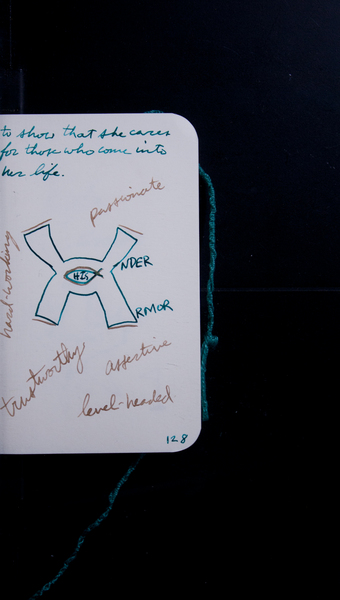 to show that she cares
for those who come into
her life.
passionate
hard-working
HIS
NDER
RMOR
trustworthy
assertive
level-headed
128